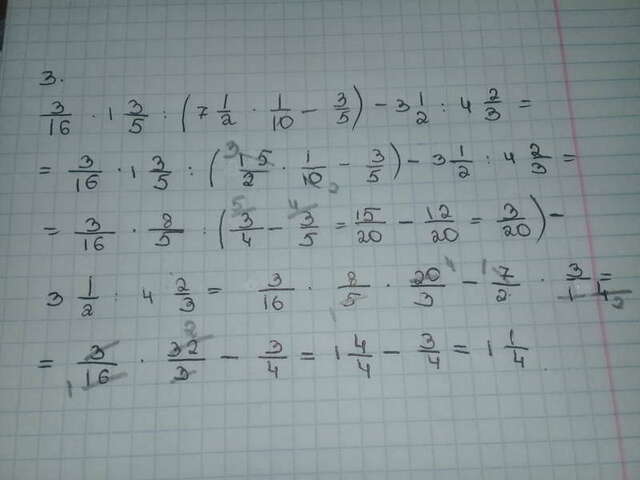 3.
3/16 · 1 3/5 : (7 1/2 · 1/10 − 3/5) − 3 1/2 : 4 2/3 =
= 3/16 · 1 3/5 : (15/2 · 1/10 − 3/5) − 3 1/2 : 4 2/3 =
= 3/16 · 8/5 : (3/4 − 3/5 = 15/20 − 12/20 = 3/20) −
3 1/2 : 4 2/3 = 3/16 · 8/5 · 20/3 − 7/2 · 3/14 =
= 3/16 · 32/3 − 3/4 = 1 4/4 − 3/4 = 1 1/4